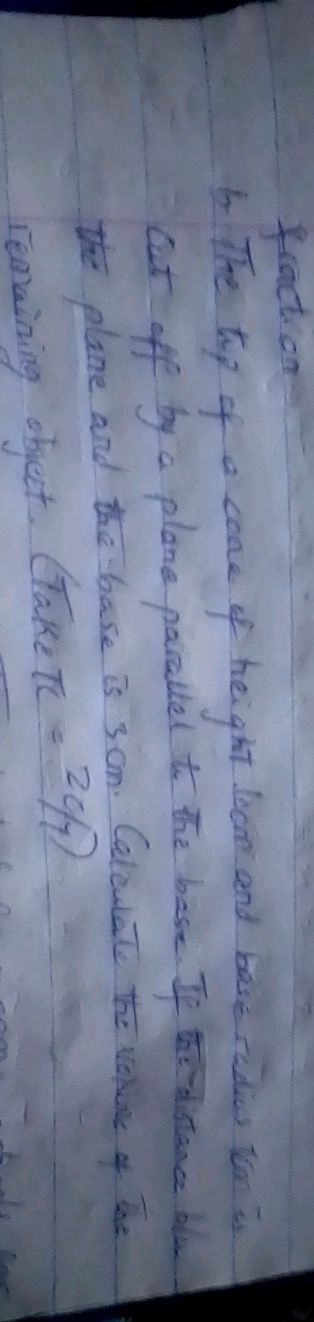 fraction
b The top of a cone of height and base radius is
Cut off by a plane parallel to the base. If the distance b/w
the plane and the base is 3cm. Calculate the volume of the
remaining object. (Take π =